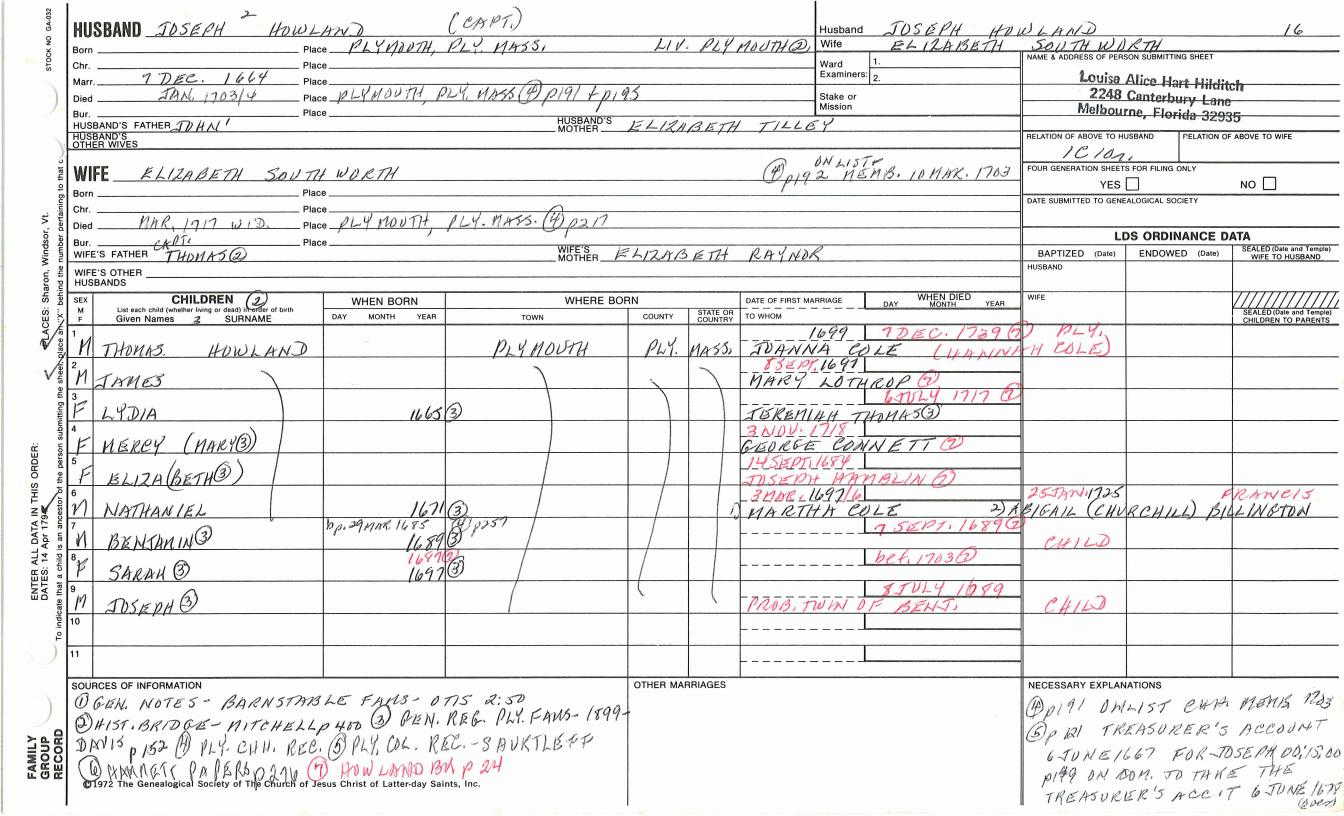 STOCK NO. GA-032
HUSBAND JOSEPH 2 HOWLAND (CAPT.)
Born Place PLYMOUTH, PLY. MASS. LIV. PLYMOUTH ②
Chr. Place
Marr. 7 DEC. 1664 Place
Died JAN. 1703/4 Place PLYMOUTH, PLY. MASS ④ p191 + p195
Bur. Place
HUSBAND'S FATHER JOHN' HUSBAND'S MOTHER ELIZABETH TILLEY
HUSBAND'S OTHER WIVES
Husband JOSEPH HOWLAND 16
Wife ELIZABETH SOUTHWORTH
Ward Examiners: 1.
2.
Stake or Mission
NAME & ADDRESS OF PERSON SUBMITTING SHEET
Louisa Alice Hart Hilditch
2248 Canterbury Lane
Melbourne, Florida 32935
RELATION OF ABOVE TO HUSBAND RELATION OF ABOVE TO WIFE
FOUR GENERATION SHEETS FOR FILING ONLY
YES NO
DATE SUBMITTED TO GENEALOGICAL SOCIETY
WIFE ELIZABETH SOUTHWORTH ④ p192 ON LIST MEMB. 10 MAR. 1703
Born Place
Chr. Place
Died MAR. 1717 WID. Place PLYMOUTH, PLY. MASS. ④ p217
Bur. Place
WIFE'S FATHER CAPT. THOMAS ② WIFE'S MOTHER ELIZABETH RAYNOR
WIFE'S OTHER HUSBANDS
LDS ORDINANCE DATA
BAPTIZED (Date) ENDOWED (Date) SEALED (Date and Temple) WIFE TO HUSBAND
HUSBAND
WIFE
SEALED (Date and Temple) CHILDREN TO PARENTS
SEX M F CHILDREN ② WHEN BORN WHERE BORN DATE OF FIRST MARRIAGE WHEN DIED
List each child (whether living or dead) in order of birth DAY MONTH YEAR
Given Names 3 SURNAME DAY MONTH YEAR TOWN COUNTY STATE OR COUNTRY TO WHOM
1 1699 7 DEC. 1739 ⑦ PLY.
M THOMAS HOWLAND PLYMOUTH PLY. MASS. JOANNA COLE (HANNAH COLE)
2 8 SEPT. 1697
M JAMES MARY LOTHROP ⑦
3 6 JULY 1717 ⑦
F LYDIA 1665 ③ JEREMIAH THOMAS ③
4 3 NOV. 1718
F MERCY (MARY ③) GEORGE CONNETT ⑦
5 14 SEPT. 1684
F ELIZA(BETH ③) JOSEPH HAMBLIN ⑦
6 3 MAR. 1697/6 25 JAN. 1725 FRANCIS
M NATHANIEL 1671 ③ 1) MARTHA COLE 2) ABIGAIL (CHURCHILL) BILLINGTON
7 bp. 29 MAR 1685 ④ p257 7 SEPT. 1689 ⑦
M BENJAMIN ③ 1689 ③ CHILD
8 1687 ⑦ bef. 1703 ⑦
F SARAH ③ 1697 ③
9 8 JULY 1689
M JOSEPH ③ PROB. TWIN OF BENJ. CHILD
10
11
SOURCES OF INFORMATION
① GEN. NOTES - BARNSTABLE FAMS - OTIS 2:50
② HIST. BRIDGE - MITCHELL p 400 ③ GEN. REG. PLY. FAMS - 1899 -
DAVIS p 152 ④ PLY. CHH. REC. ⑤ PLY. COL. REC. - SHURTLEFF
⑥ HAMMETT PAPERS p 276 ⑦ HOWLAND BK p 24
©1972 The Genealogical Society of The Church of Jesus Christ of Latter-day Saints, Inc.
OTHER MARRIAGES
NECESSARY EXPLANATIONS
④ p191 ON LIST CHH. MEMB 1703
⑤ p 121 TREASURER'S ACCOUNT
6 JUNE 1667 FOR JOSEPH 00,15,00
p199 ON COM. TO TAKE THE
TREASURER'S ACC'T 6 JUNE 1678
(over)
FAMILY GROUP RECORD
ENTER ALL DATA IN THIS ORDER:
DATES: 14 Apr 1794
PLACES: Sharon, Windsor, Vt.
To indicate that a child is an ancestor of the person submitting the sheet, place an "X" behind the number pertaining to that c